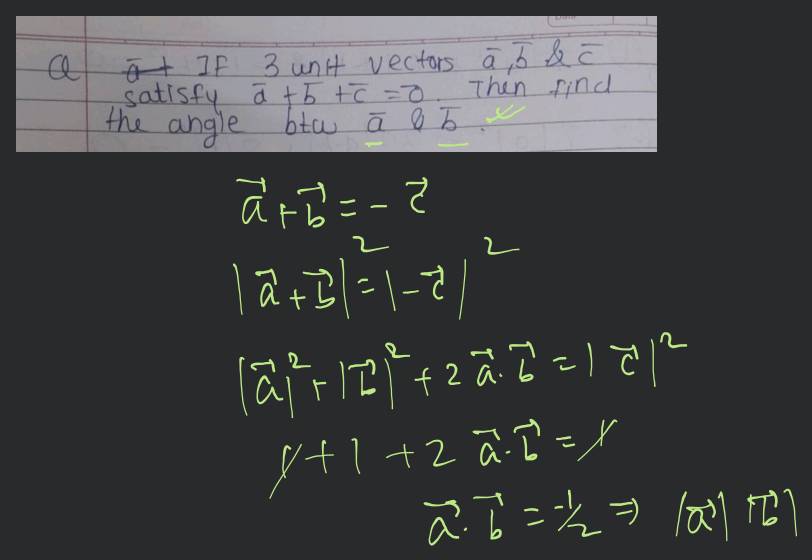 Q a+ If 3 unit vectors a̅, b̅ & c̅
satisfy a̅ + b̅ + c̅ = 0. Then find
the angle btw a̅ & b̅.
a⃗ + b⃗ = - c⃗
|a⃗ + b⃗|² = |-c⃗|²
|a⃗|² + |b⃗|² + 2 a⃗.b⃗ = |c⃗|²
1 + 1 + 2 a⃗.b⃗ = 1
a⃗.b⃗ = -1/2 ⇒ |a⃗| |b⃗|